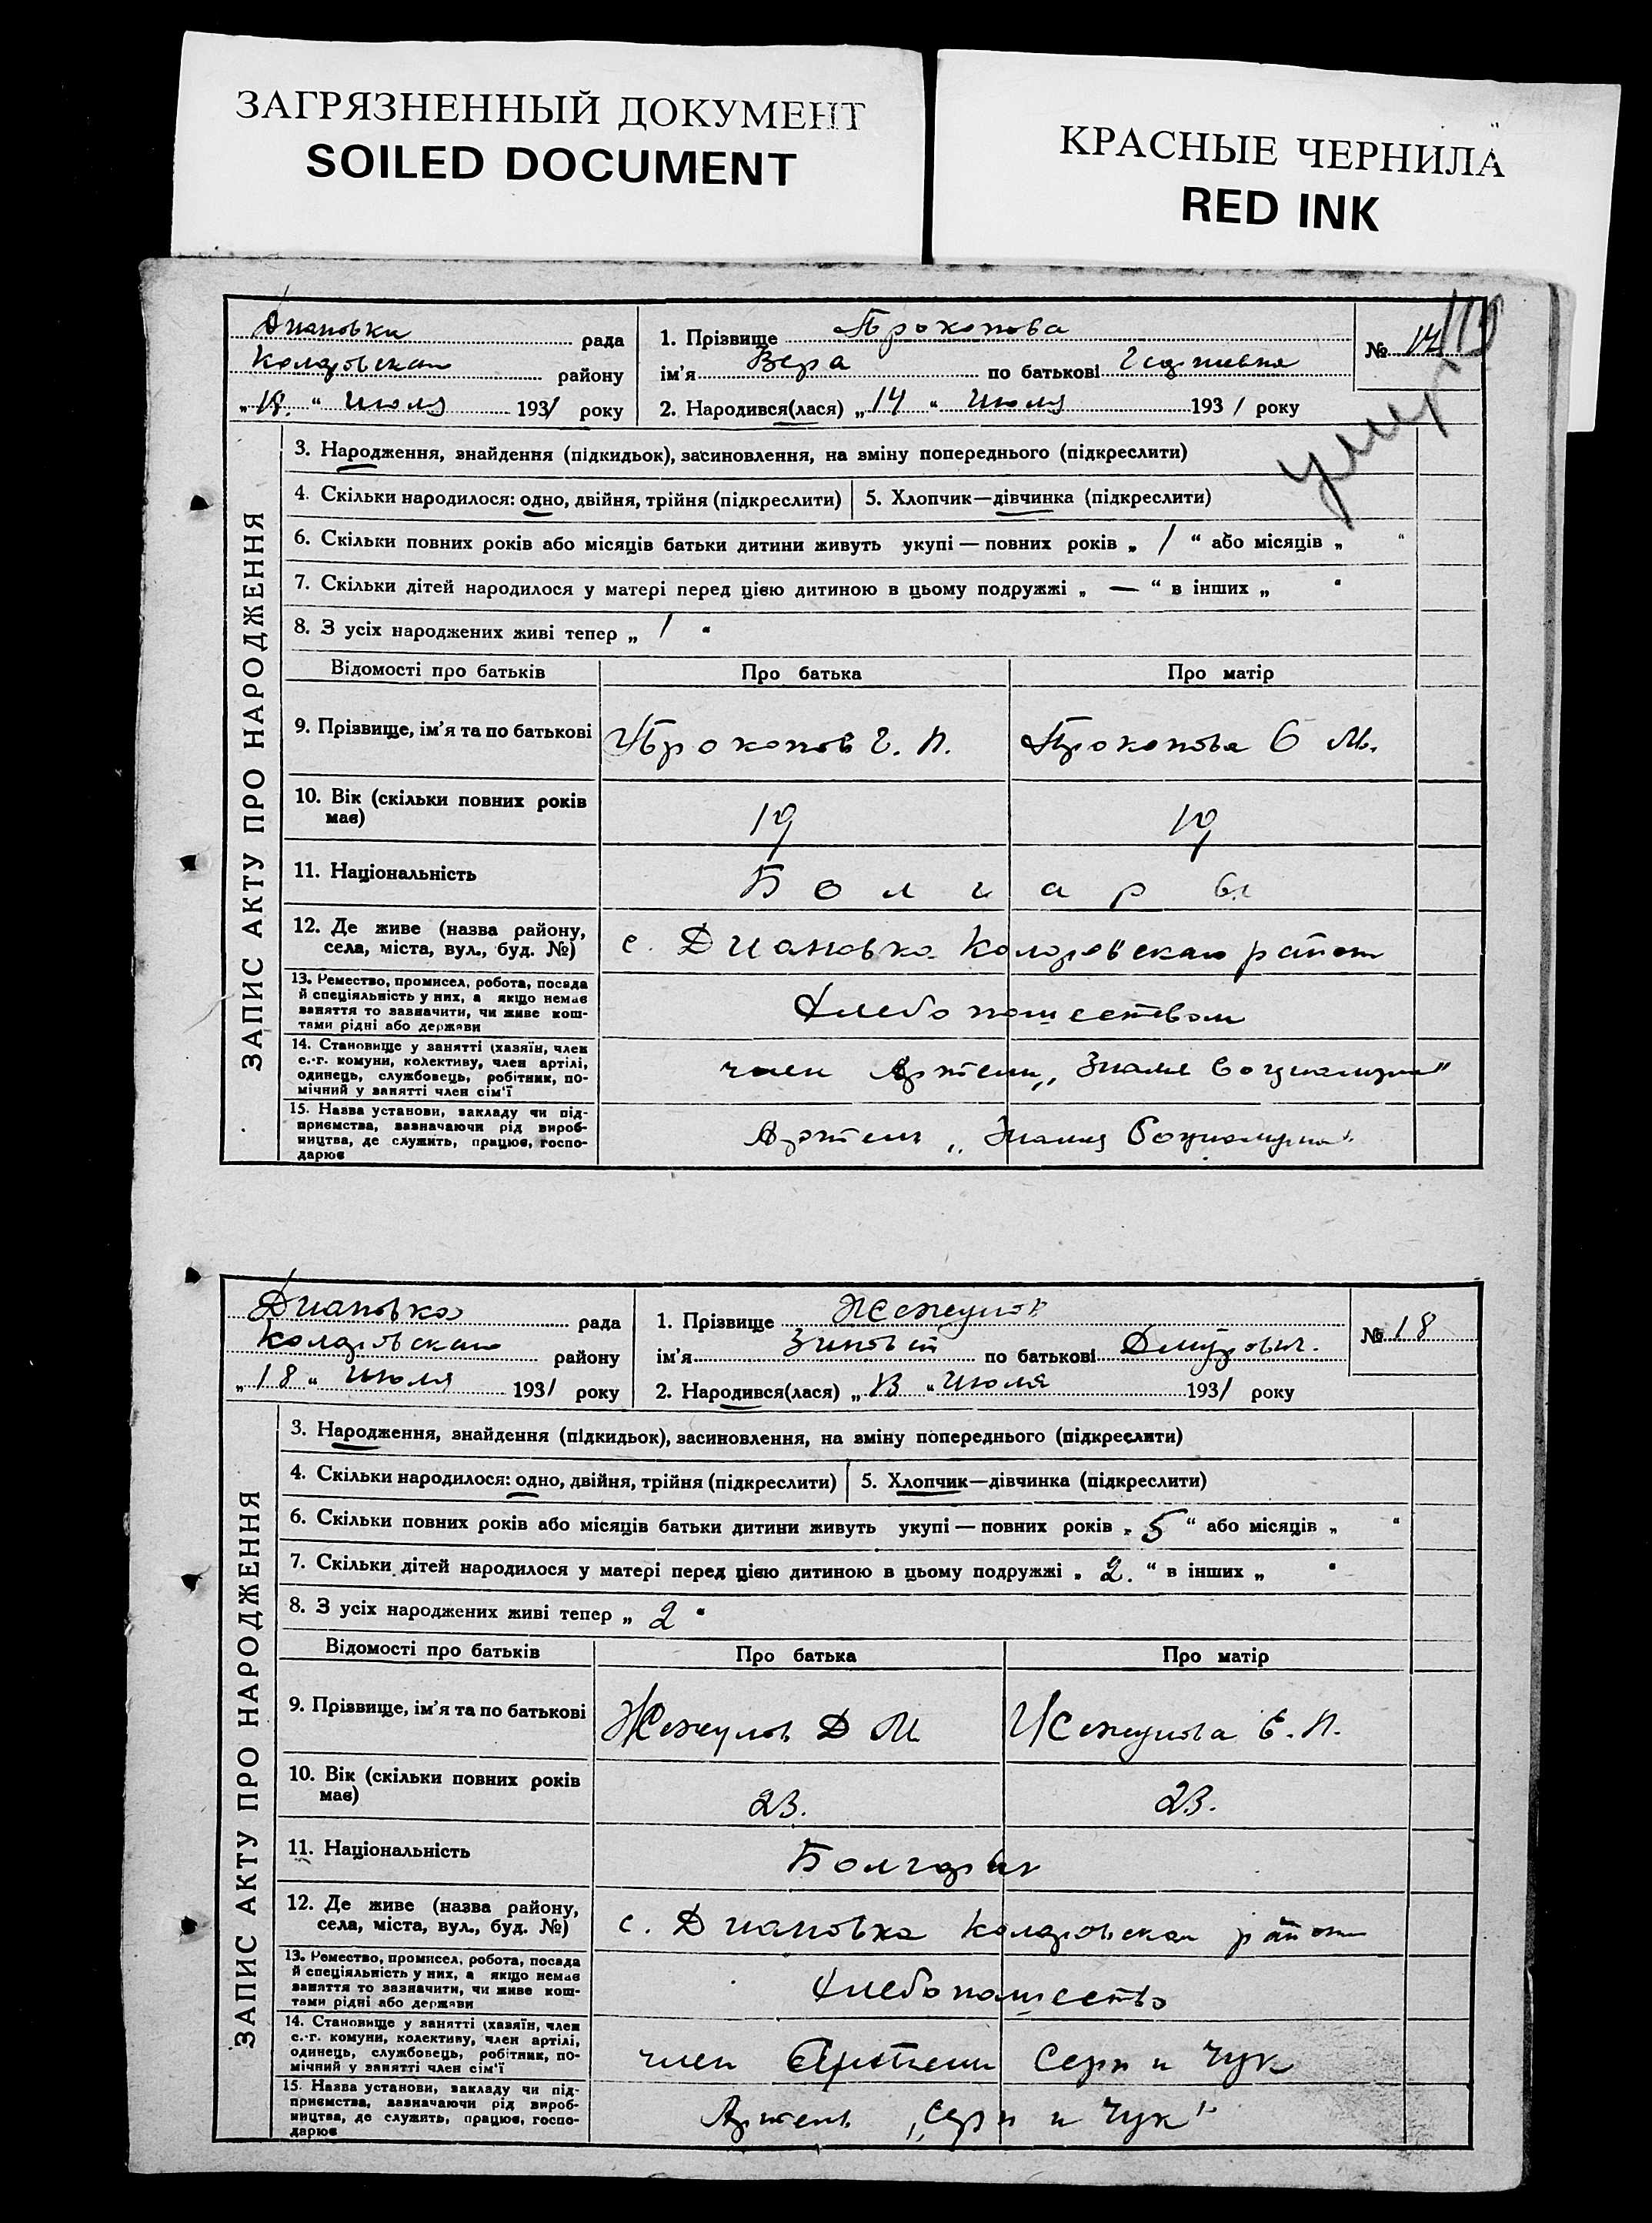 ЗАГРЯЗНЕННЫЙ ДОКУМЕНТ
SOILED DOCUMENT
КРАСНЫЕ ЧЕРНИЛА
RED INK
Диановка рада
Коларовскаго району
„18.“ Июля 1931 року
1. Прізвище Прокопова
ім'я Вера по батькові
2. Народився(лася) „14“ Июля 1931 року
№ 17
умер
ЗАПИС АКТУ ПРО НАРОДЖЕННЯ
3. Народження, знайдення (підкидьок), засиновлення, на зміну попереднього (підкреслити)
4. Скільки народилося: одно, двійня, трійня (підкреслити)
5. Хлопчик—дівчинка (підкреслити)
6. Скільки повних років або місяців батьки дитини живуть укупі — повних років „ 1 “ або місяців „ “
7. Скільки дітей народилося у матері перед цією дитиною в цьому подружжі „ — “ в інших „ “
8. З усіх народжених живі тепер „ 1 “
Відомості про батьків Про батька Про матір
9. Прізвище, ім'я та по батькові Прокопов Г. П. Прокопова Е М.
10. Вік (скільки повних років
має) 19 19
11. Національність Болгары
12. Де живе (назва району,
села, міста, вул., буд. №) с. Диановка Коларовскаго район
13. Ремество, промисел, робота, посада
й спеціяльність у них, а якщо немає
заняття то зазначити, чи живе кош-
тами рідні або держави
Хлебопашеством
14. Становище у занятті (хазяїн, член
с.-г. комуни, колективу, член артілі,
одинець, службовець, робітник, по-
мічний у занятті член сім'ї
член Артели „Знамя Социализма“
15. Назва установи, закладу чи під-
приємства, зазначаючи рід вироб-
ництва, де служить, працює, госпо-
дарює
Артель „Знамя Социализма“
Диановка рада
Коларовскаго району
„18“ Июля 1931 року
1. Прізвище Жежулов
ім'я Зиновій по батькові
2. Народився(лася) „13“ Июля 1931 року
№ 18
ЗАПИС АКТУ ПРО НАРОДЖЕННЯ
3. Народження, знайдення (підкидьок), засиновлення, на зміну попереднього (підкреслити)
4. Скільки народилося: одно, двійня, трійня (підкреслити)
5. Хлопчик—дівчинка (підкреслити)
6. Скільки повних років або місяців батьки дитини живуть укупі — повних років „ 5 “ або місяців „ “
7. Скільки дітей народилося у матері перед цією дитиною в цьому подружжі „ 2. “ в інших „ “
8. З усіх народжених живі тепер „ 2 “
Відомості про батьків Про батька Про матір
9. Прізвище, ім'я та по батькові Жежулов Д М Жежулова Е. П.
10. Вік (скільки повних років
має) 23. 23.
11. Національність Болгары
12. Де живе (назва району,
села, міста, вул., буд. №) с. Диановка Коларовскаго район
13. Ремество, промисел, робота, посада
й спеціяльність у них, а якщо немає
заняття то зазначити, чи живе кош-
тами рідні або держави
Хлебопашество
14. Становище у занятті (хазяїн, член
с.-г. комуни, колективу, член артілі,
одинець, службовець, робітник, по-
мічний у занятті член сім'ї
член Артели Серп и Чук
15. Назва установи, закладу чи під-
приємства, зазначаючи рід вироб-
ництва, де служить, працює, госпо-
дарює
Артель „Серп и Чук“